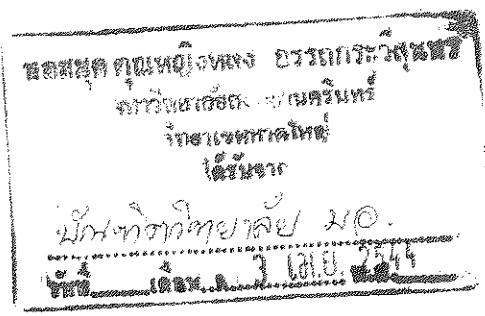 หอสมุด คุณหญิงหลง อรรถกระวีสุนทร
มหาวิทยาลัยสงขลานครินทร์
วิทยาเขตหาดใหญ่
ได้รับจาก
บัณฑิตวิทยาลัย มอ.
วันที่ เดือน 3 เม.ย. 2544